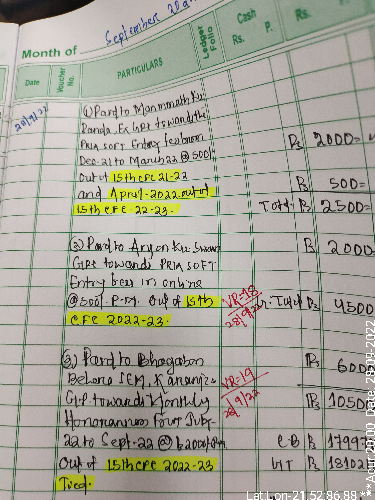 September 202
Month of
Date
Voucher No.
PARTICULARS
Ledger Folio
Cash
Rs. P.
Rs.
28/9/22
1) Paid to Manmmath Ku.
Panda, Ex GRS towards the
PRIA SOFT Entry fees from
Dec-21 to March 22 @ 500/-
Rs 2000=
Out of 15th CFC 21-22
and April-2022 out of
Rs 500=
15th CFC 22-23.
Total- Rs 2500=
2) Paid to Aryan Ku. Swain
Rs 2000
GRS towards PRIA SOFT
Entry fees in online
@500/- P.M. Out of 15th
VR-18
28/9/22
Gr. Total Rs 4500
CFC 2022-23.
3) Paid to Bhagaban
Rs 6000
Behera SEM,
VR-19
28/9/22
G.P towards Monthly
Rs 10500
Honorarium from July-
22 to Sept-22 @ 2000/-
C B 17997
Out of 15th CFC 2022-23
GT 18102
Tied.
Lat Lon-21.52:86.88 "
Date 28-09-2022